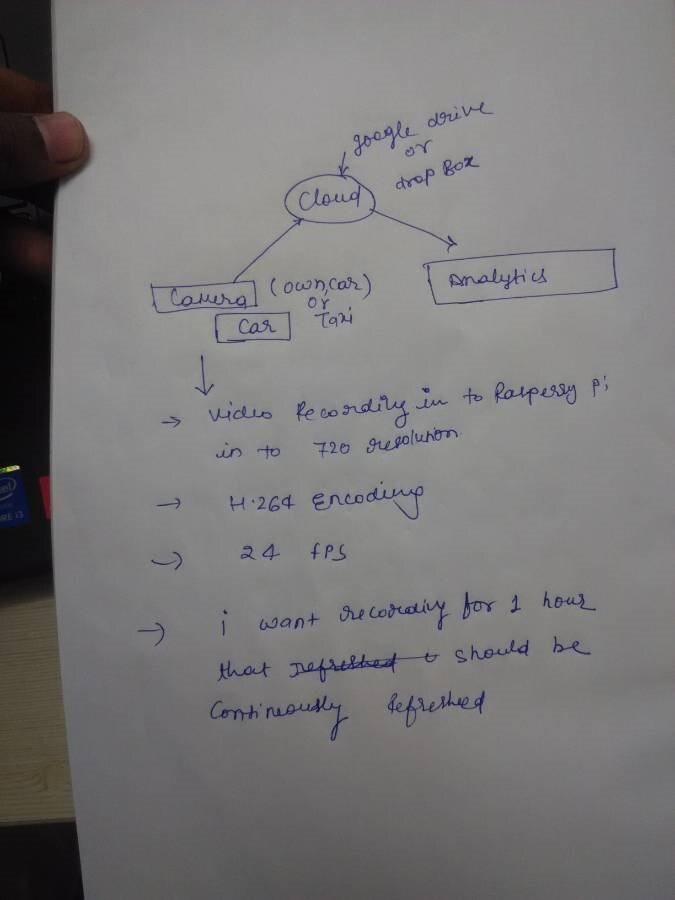 google drive
or
drop Box
Cloud
Camera
(own car)
or
Taxi
Car
Analytics
→ Video Recording in to Rasperry Pi
in to 720 resolution.
→ H.264 Encoding
→ 24 fps
→ i want recording for 1 hour
that Refreshed should be
Continously Refreshed
intel
CORE i3